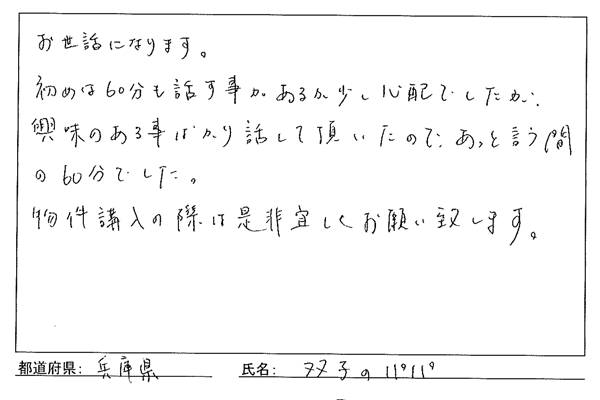 お世話になります。
初めは60分も話す事があるか少し心配でしたが、
興味のある事ばかり話して頂いたので、あっと言う間
の60分でした。
物件講入の際は是非宜しくお願い致します。
都道府県: 兵庫県 氏名: 双子のパパ